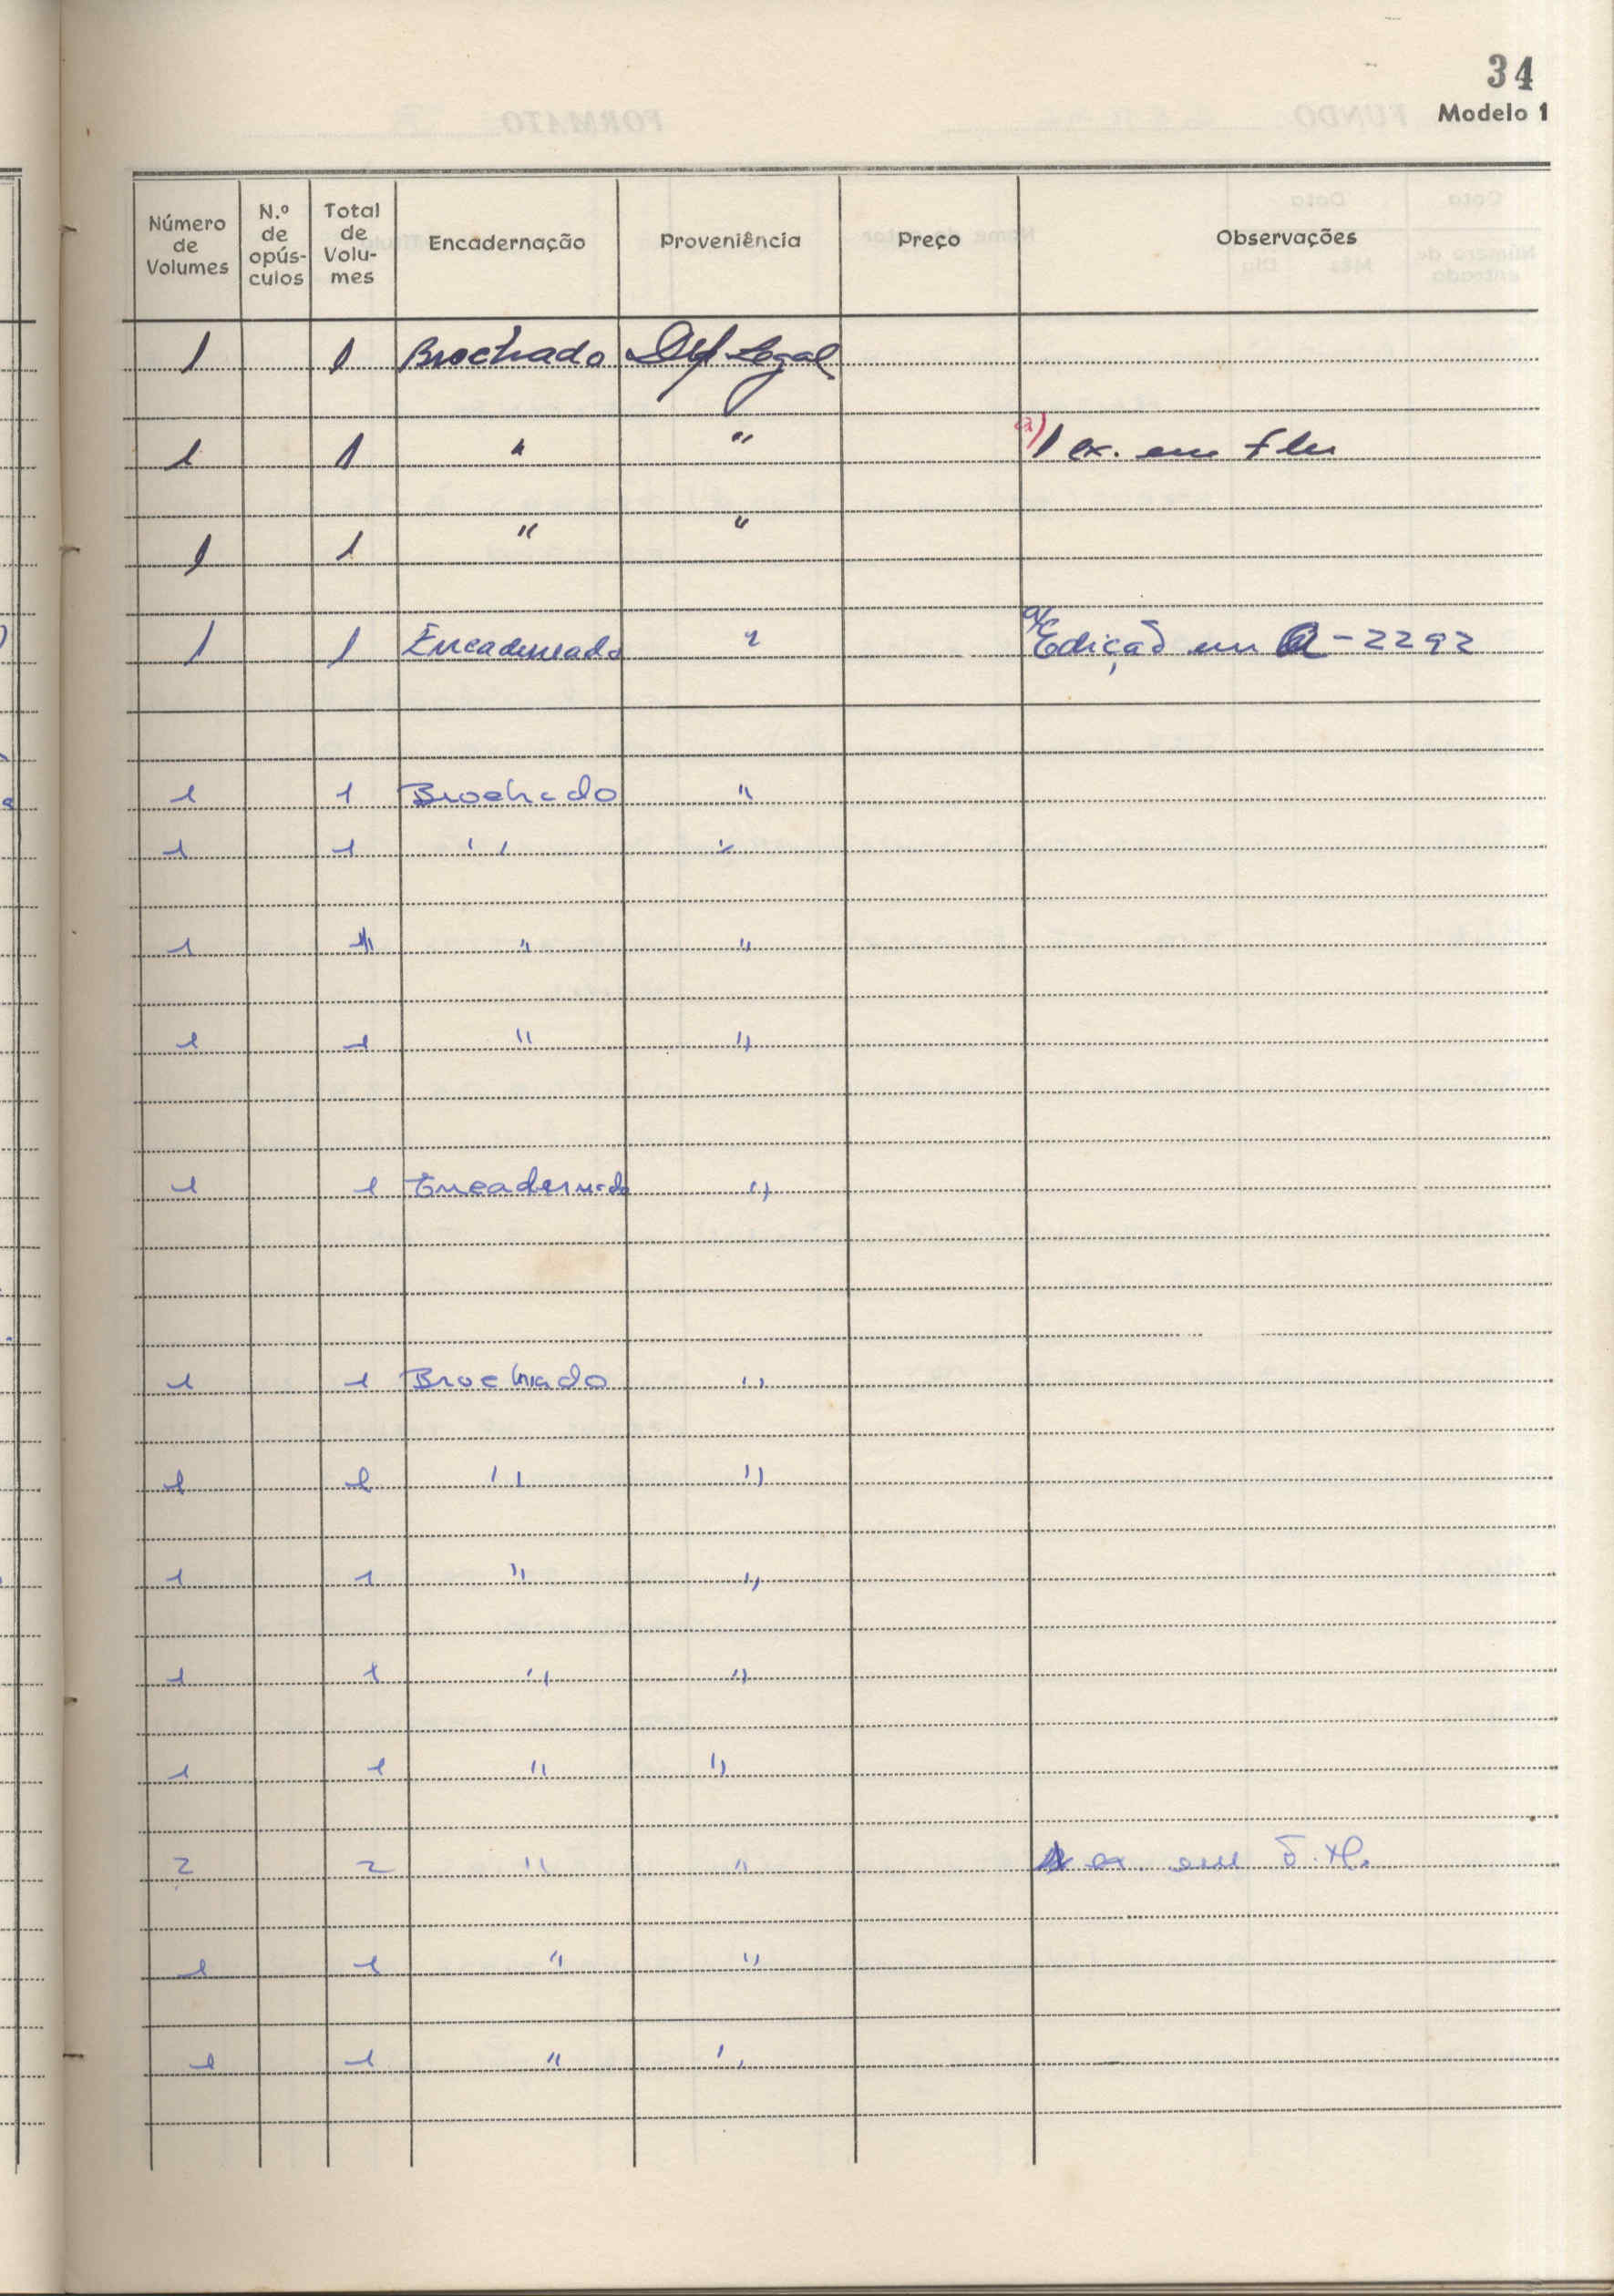 34
Modelo 1
Número de Volumes N.º de opús- culos Total de Volu- mes Encadernação Proveniência Preço Observações
1 1 Brochado Dep Legal
1 1 " " a) 1 ex. em
1 1 " "
1 1 Encadernado " Edição em -2292
1 1 Brochado "
1 1 " "
1 1 " "
1 1 " "
1 1 Encadernado "
1 1 Brochado "
1 1 " "
1 1 " "
1 1 " "
1 1 " "
2 2 " " 1 ex. em
1 1 " "
1 1 " "